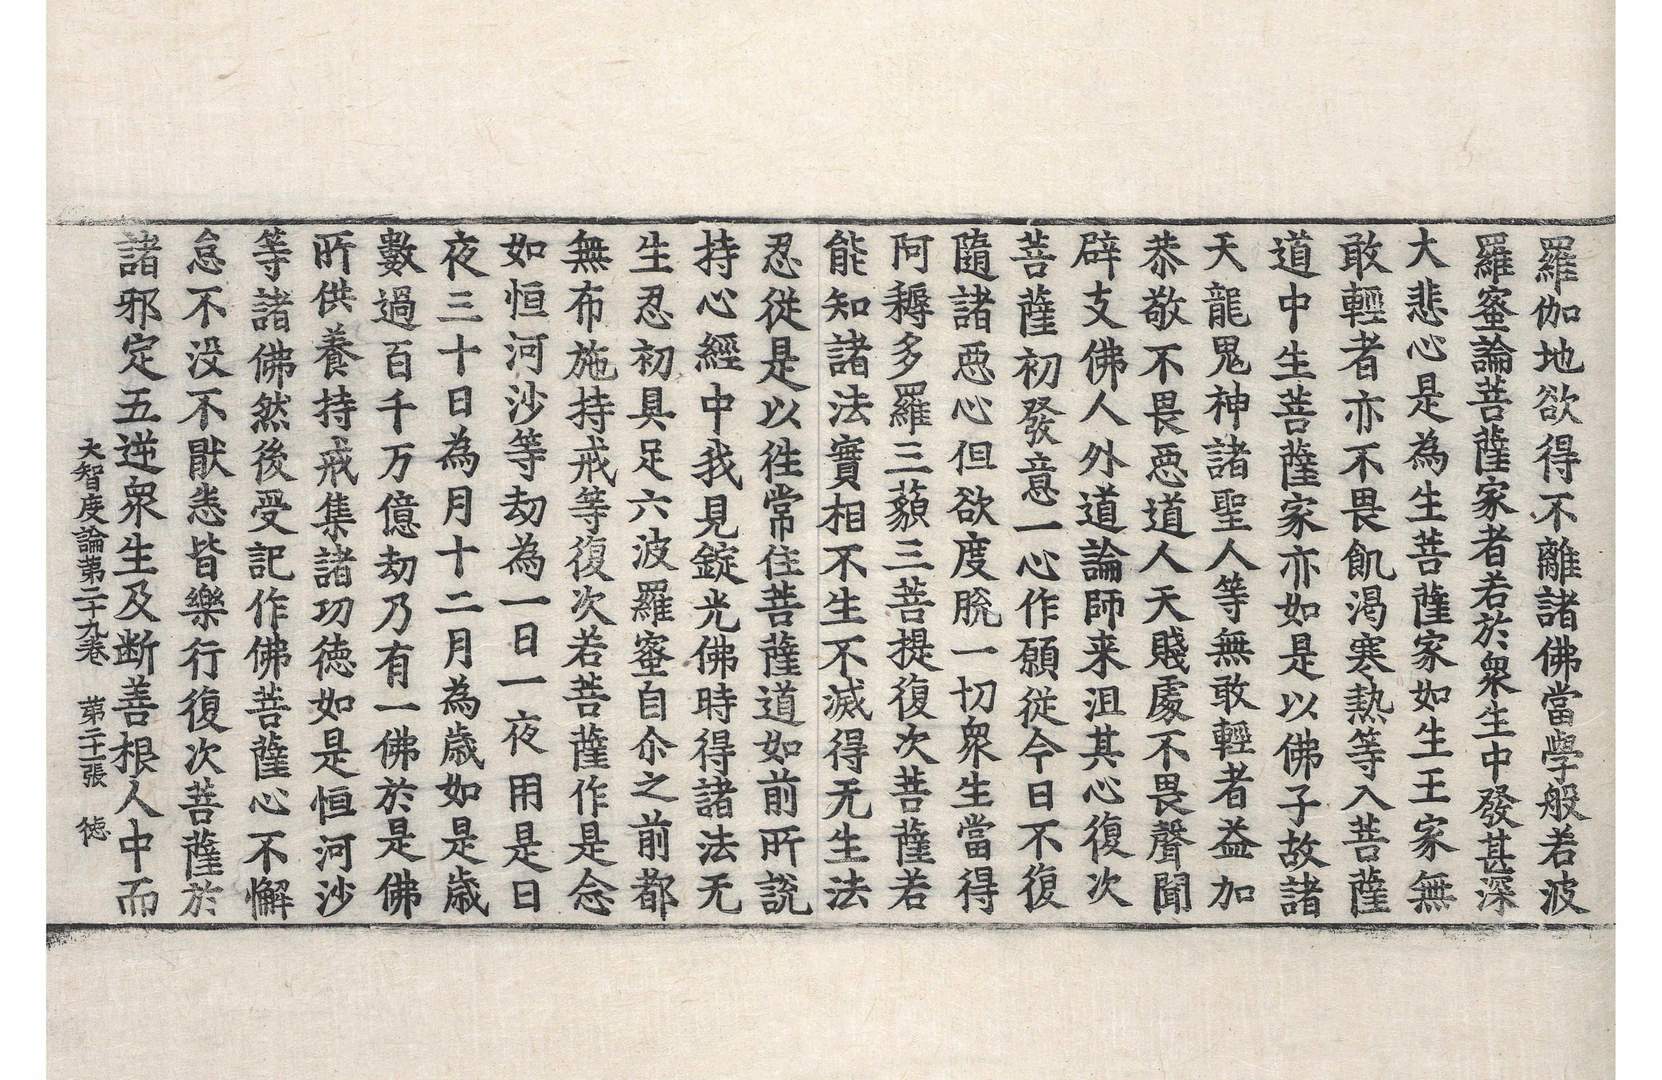 羅伽地欲得不離諸佛當學般若波
羅蜜論菩薩家者若於衆生中發甚深
大悲心是為生菩薩家如生王家無
敢輕者亦不畏飢渴寒熱等入菩薩
道中生菩薩家亦如是以佛子故諸
天龍鬼神諸聖人等無敢輕者益加
恭敬不畏惡道人天賤處不畏聲聞
辟支佛人外道論師来沮其心復次
菩薩初發意一心作願從今日不復
隨諸惡心但欲度脫一切衆生當得
阿耨多羅三藐三菩提復次菩薩若
能知諸法實相不生不滅得无生法
忍從是以徃常住菩薩道如前所說
持心經中我見錠光佛時得諸法无
生忍初具足六波羅蜜自尒之前都
無布施持戒等復次若菩薩作是念
如恒河沙等劫為一日一夜用是日
夜三十日為月十二月為歲如是歲
數過百千万億劫乃有一佛於是佛
所供養持戒集諸功徳如是恒河沙
等諸佛然後受記作佛菩薩心不懈
怠不没不猒悉皆樂行復次菩薩於
諸邪定五逆衆生及断善根人中而
大智度論第二十九卷　第二十一張　徳